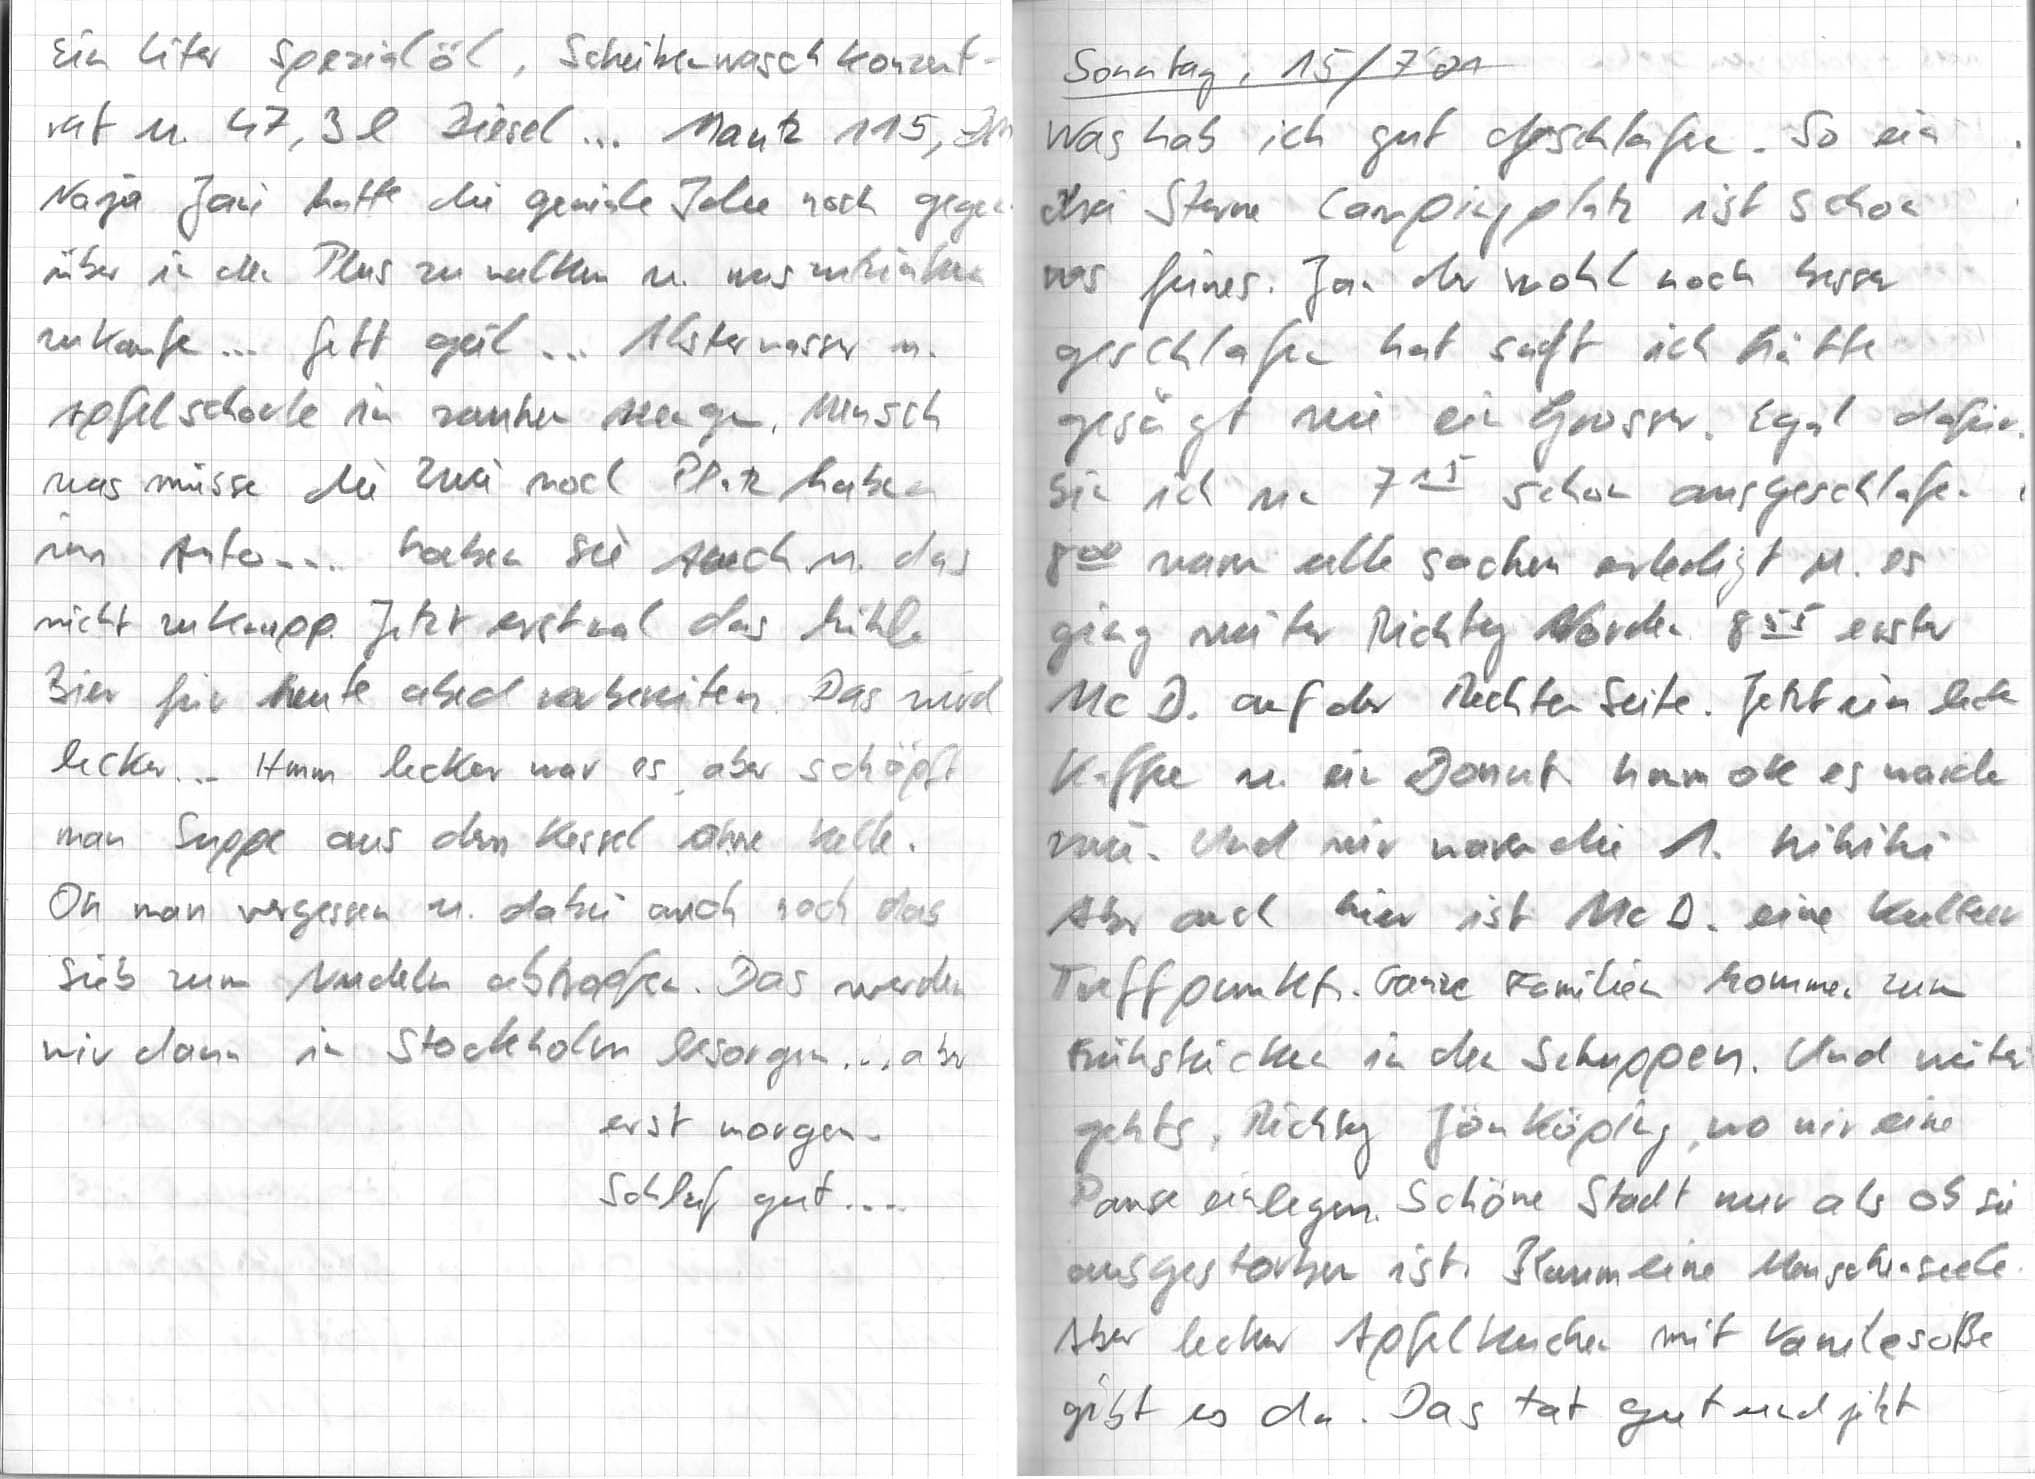 Ein Liter Spezialöl, Scheibenwaschkonzent-
rat u. 47,3 l Diesel... Mautz 115,
Naja Jani hatte die geniale Idee noch gegen
über in den Plus zu walken u. was zutrinken
zukaufe... Fett geil... Alsterwasser u.
Apfelschorle in rauhen Mengen. Mensch
was müsse die Zwei noch Platz haben
im Auto... haben sie auch u. das
nicht zuknapp. Jetzt erstmal das kühle
Bier für heute abend vorbereiten. Das wird
lecker... Hmm lecker war es, aber schöpft
man Suppe aus dem Kessel ohne Kelle.
Oh man vergessen u. dabei auch noch das
Sieb zum Nudeln abtropfen. Das werden
wir dann in Stockholm besorgen... aber
erst morgen.
Schlaf gut....
Sonntag, 15/7'01
Was hab ich gut geschlafen. So ein
drei Sterne Campingplatz ist schon
was feines. Jan der wohl noch besser
geschlafen hat sagt ich hätte
gesägt wie ein Grosser. Egal dafür
bin ich um 7 15 schon ausgeschlafen
8 00 warn alle sachen erledigt u. es
ging weiter Richtung Norden 8 55 erster
Mc D. auf der Rechten Seite. Jetzt ein lecker
Kaffee u. ein Donut. hmm ok es wurde
zwei. Und wir waren die 1. hihihi
Aber auch hier ist Mc D. eine Kultur
Treffpunkt. Ganze Familien kommen zum
Frühstücken in den Schuppen. Und weiter
gehts, Richtung Jönköping, wo wir eine
Pause einlegen. Schöne Stadt nur als ob sie
ausgestorben ist. Kaum eine Menschenseele.
Aber lecker Apfelkuchen mit Vanilesoße
gibt es da. Das tat gut und jetzt